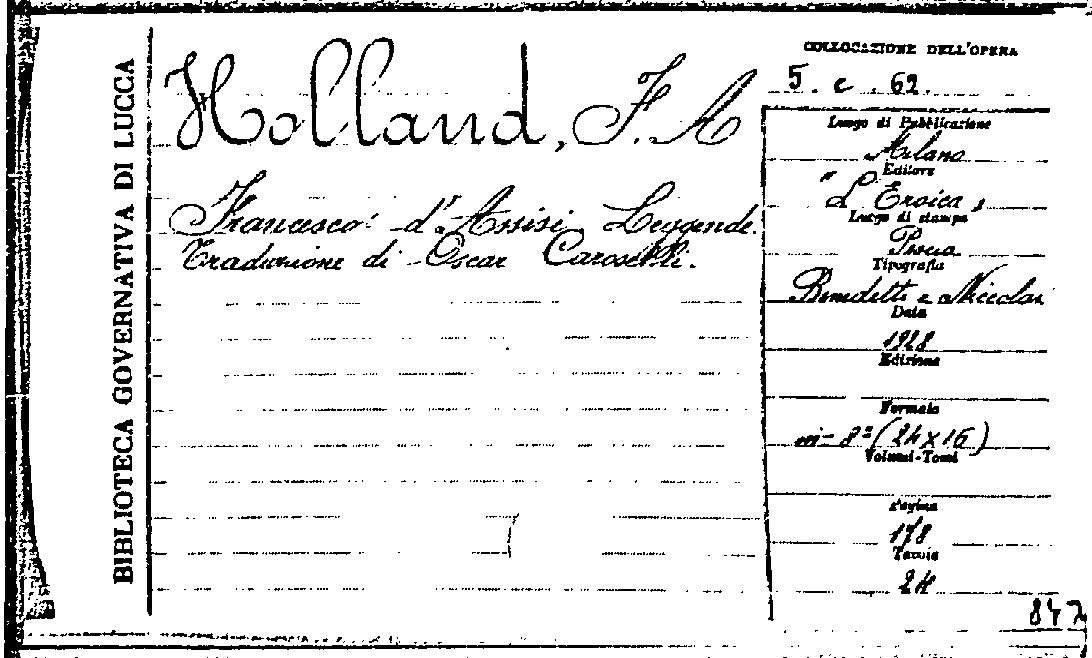 BIBLIOTECA GOVERNATIVA DI LUCCA
Holland, F. A
Francesco d'Assisi Leggende.
Traduzione di Oscar Caroselli.
COLLOCAZIONE DELL'OPERA
5. c. 62.
Luogo di Pubblicazione
Milano
Editore
"L'Eroica"
Luogo di stampa
Pescia
Tipografia
Benedetti e Niccolai
Data
1928
Edizione
Formato
in-8º (24x16)
Volumi-Tomi
Pagine
178
Tavole
24
847